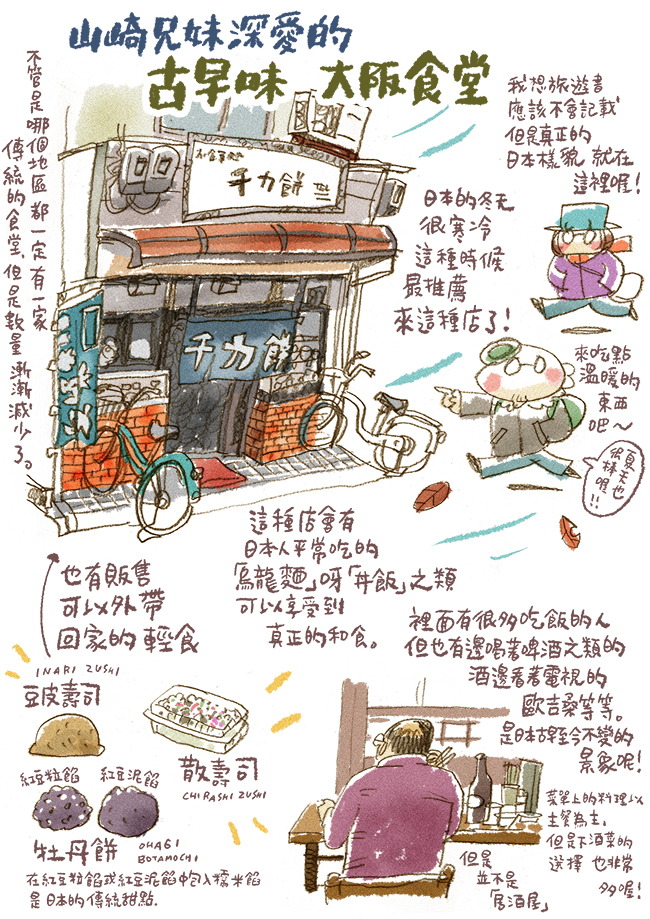 山崎兄妹深愛的
古早味 大阪食堂
不管是哪個地區都一定有一家
傳統的食堂，但是數量漸漸減少了。
我想旅遊書
應該不會記載
但是真正的
日本樣貌 就在
這裡喔！
千力餅
千力餅
日本的冬天
很寒冷
這種時候
最推薦
來這種店了！
來吃點
溫暖的
東西
吧～
夏天也
很棒喔!!
這種店會有
日本人平常吃的
「烏龍麵」呀「丼飯」之類
可以享受到
真正的和食。
也有販售
可以外帶
回家的輕食
INARI ZUSHI
豆皮壽司
散壽司
CHIRASHI ZUSHI
紅豆粒餡 紅豆泥餡
牡丹餅
OHAGI
BOTAMOCHI
在紅豆粒餡或紅豆泥餡中包入糯米餡
是日本的傳統甜點.
裡面有很多吃飯的人
但也有邊喝著啤酒之類的
酒邊看著電視的
歐吉桑等等。
是日本古早至今不變的
景象呢！
菜單上的料理以
主餐為主，
但是下酒菜的
選擇 也非常
多喔！
但是
並不是
「居酒屋」